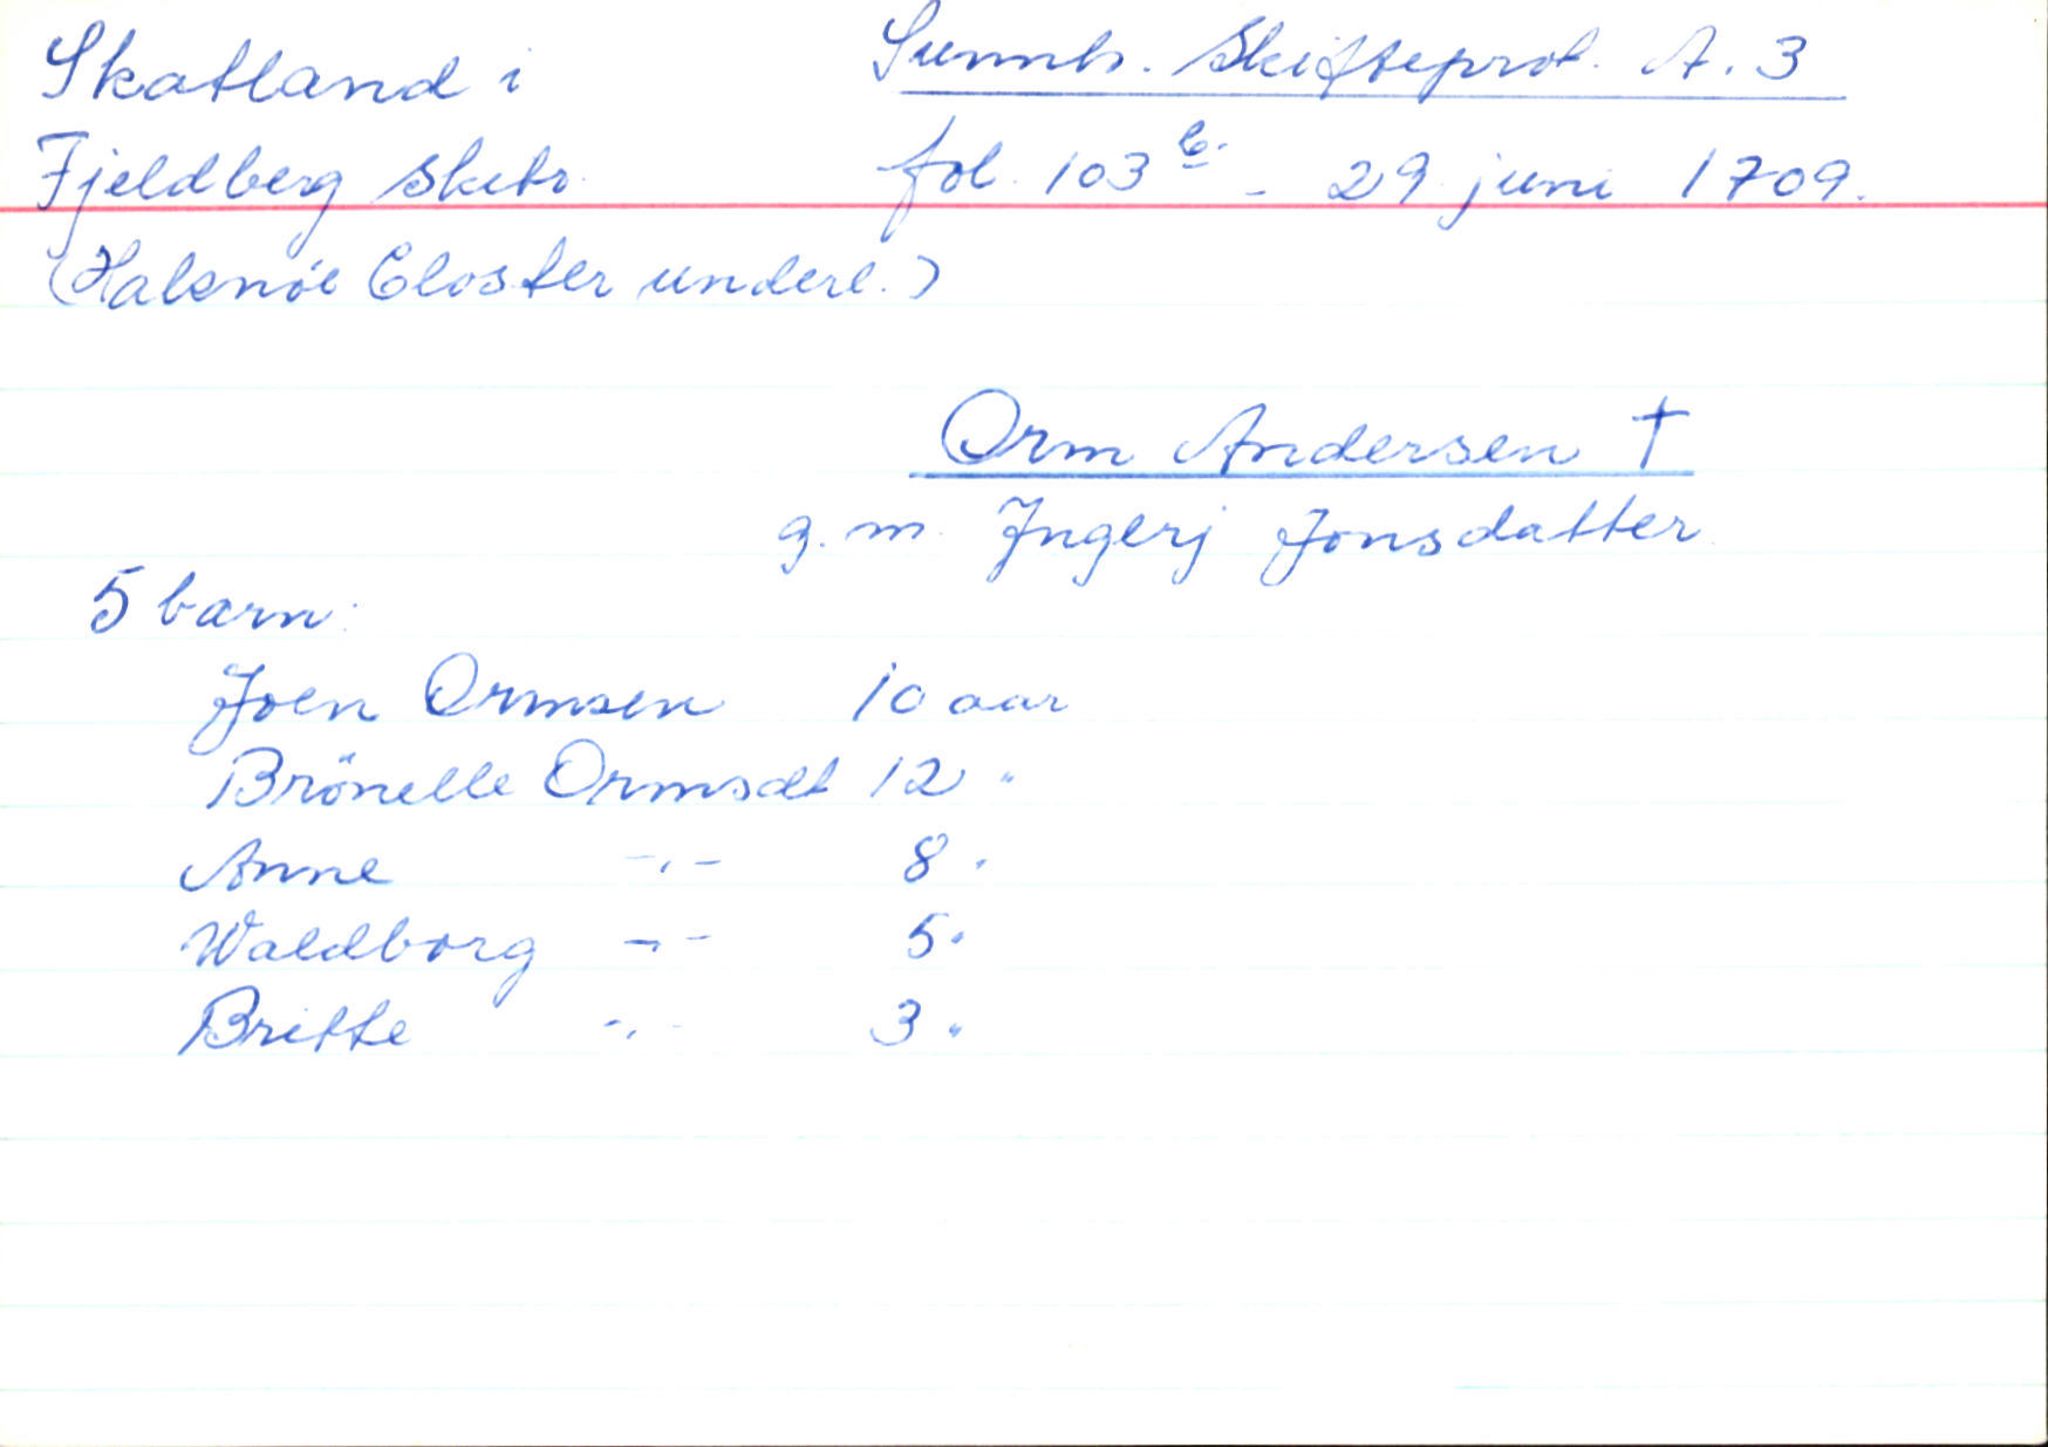 Skatland i
Fjeldberg skibr.
(Halsnöe Closter underl.)
Sunnh. Skifteprot. A. 3
fol. 103 b. - 29 juni 1709.
Orm Andersen †
g. m. Ingerj Jonsdatter
5 barn:
Joen Ormsen 10 aar
Brönelle Ormsdt 12 "
Anne -"- 8 "
Waldborg -"- 5 "
Britte -"- 3 "